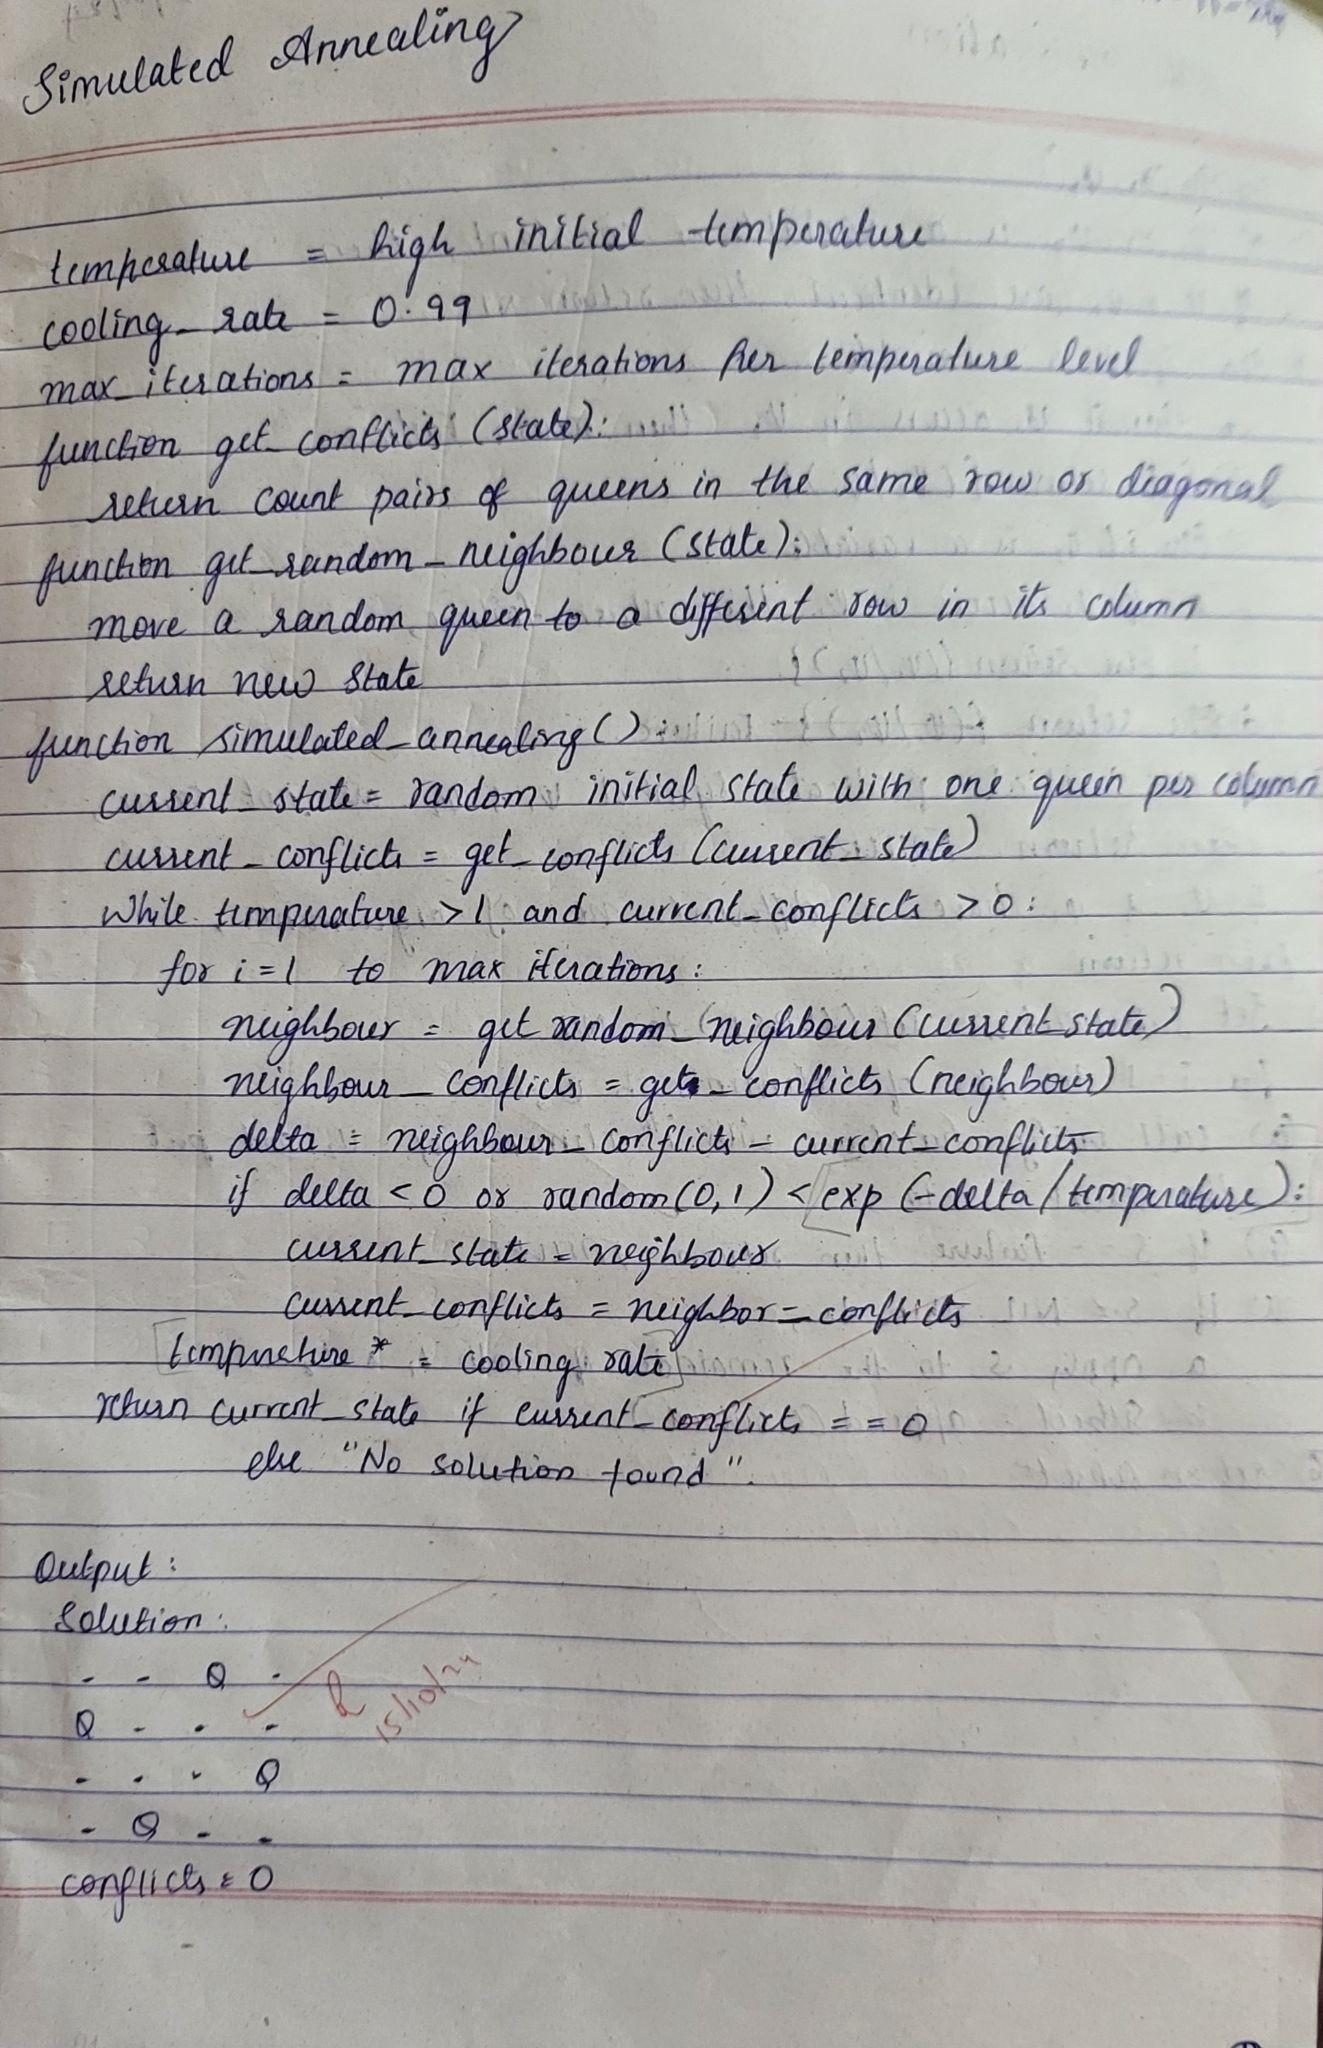 Simulated Annealing
temperature = high initial temperature
cooling_rate = 0.99
max_iterations = max iterations per temperature level
function get_conflicts (state):
return count pairs of queens in the same row or diagonal
function get_random_neighbour (state):
move a random queen to a different row in its column
return new state
function simulated_annealing()
current_state = random initial state with one queen per column
current_conflicts = get_conflicts (current_state)
while temperature > 1 and current_conflicts > 0:
for i = 1 to max iterations:
neighbour = get random_neighbour (current state)
neighbour_conflicts = get_conflicts (neighbour)
delta = neighbour_conflicts - current_conflicts
if delta < 0 or random(0,1) < exp (-delta / temperature):
current_state = neighbour
current_conflicts = neighbor_conflicts
temperature * = cooling rate
return current_state if current_conflicts == 0
else "No solution found".
Output:
Solution:
- - Q -
Q - - -
- - - Q
- Q - -
conflicts = 0
15/10/24